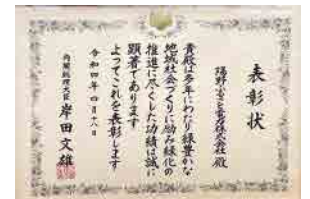 表彰状
陽野ふるさと電力株式会社 殿
貴殿は多年にわたり緑豊かな
地域社会づくりに励み緑化の
推進に尽くした功績は誠に
顕著であります
よってこれを表彰します
令和四年四月十八日
内閣総理大臣 岸田文雄